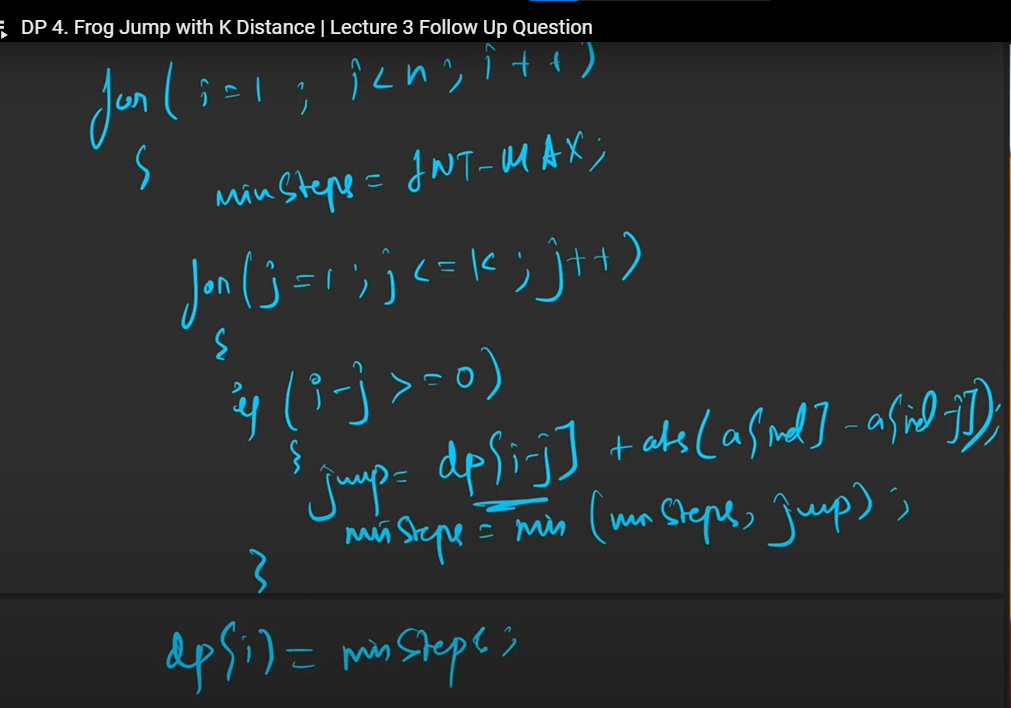 DP 4. Frog Jump with K Distance | Lecture 3 Follow Up Question
for( i=1 ; i<n ; i++)
{
minSteps = INT-MAX;
for(j=1; j<=K ; j++)
{
if (i-j >=0)
{
jump= dp[i-j] + abs(a[ind] - a[ind-j]);
minSteps = min (minSteps, jump) ;
}
dp[i] = minSteps ;